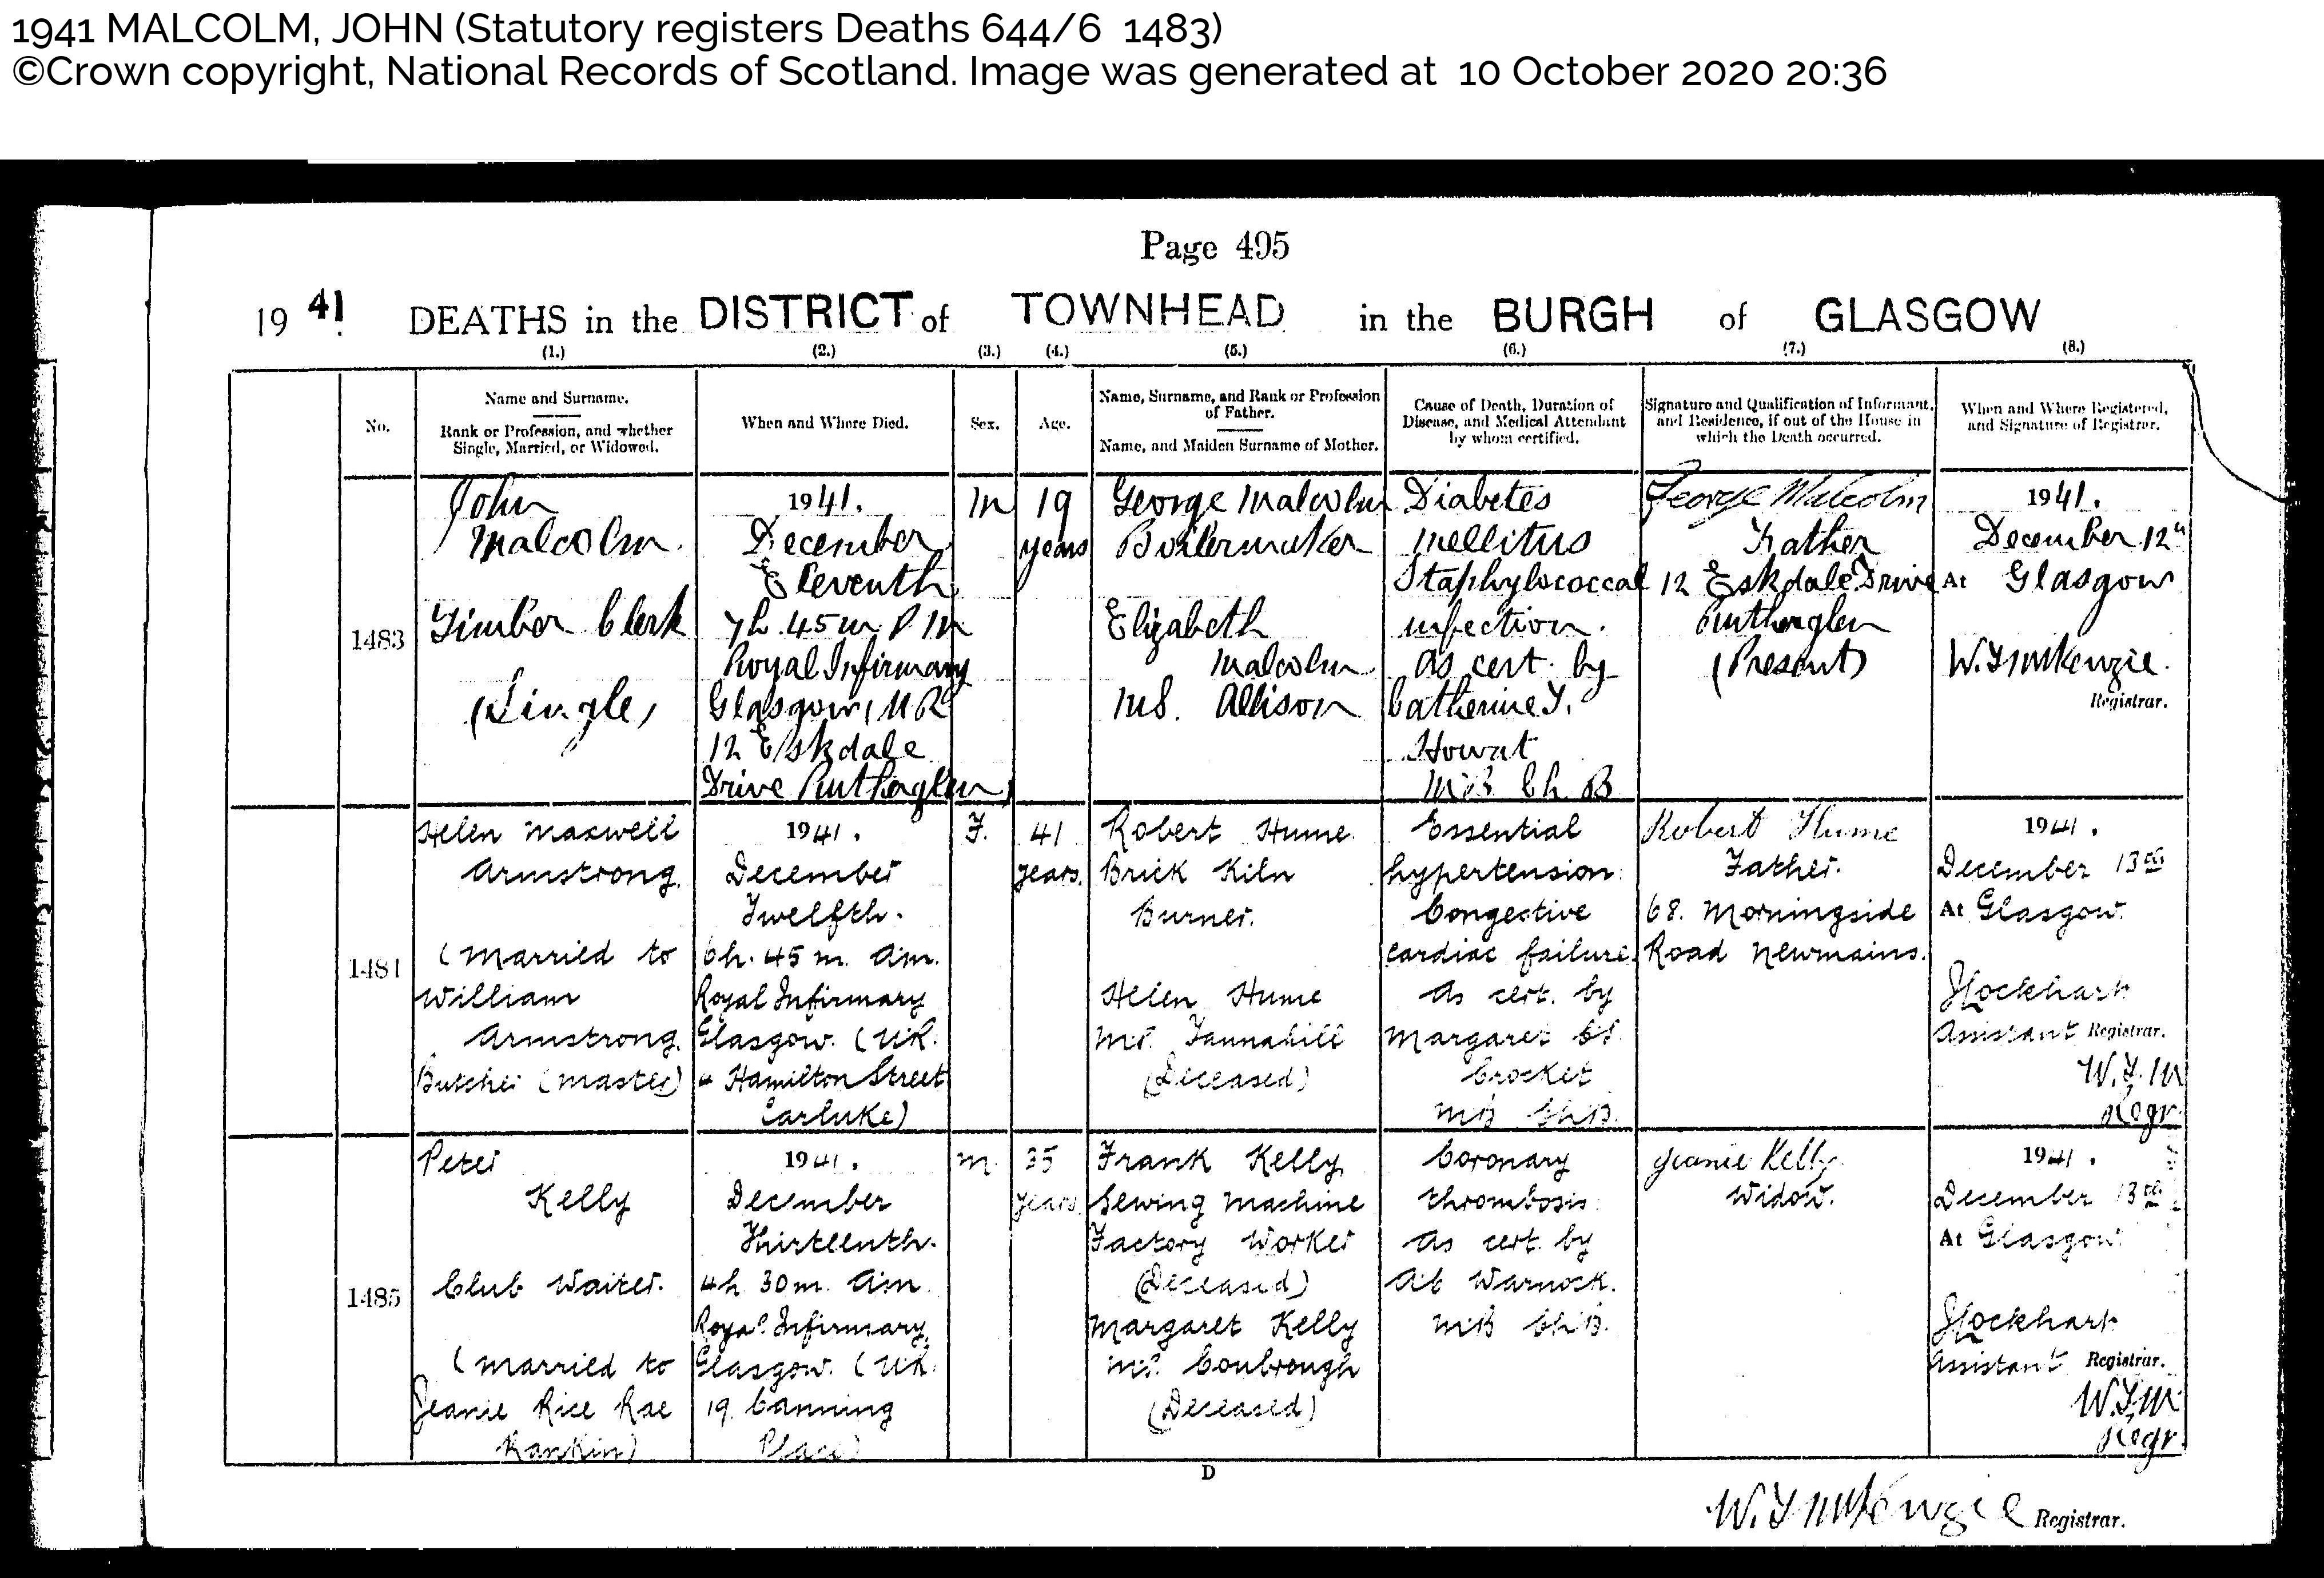 1941 MALCOLM, JOHN (Statutory registers Deaths 644/6 1483)
©Crown copyright, National Records of Scotland. Image was generated at 10 October 2020 20:36
Page 495
1941. DEATHS in the DISTRICT of TOWNHEAD in the BURGH of GLASGOW
(1.) (2.) (3.) (4.) (5.) (6.) (7.) (8.)
No.
Name and Surname.
Rank or Profession, and whether
Single, Married, or Widowed.
When and Where Died.
Sex.
Age.
Name, Surname, and Rank or Profession
of Father.
Name, and Maiden Surname of Mother.
Cause of Death, Duration of
Disease, and Medical Attendant
by whom certified.
Signature and Qualification of Informant,
and Residence, if out of the House in
which the Death occurred.
When and Where Registered,
and Signature of Registrar.
1483
John
Malcolm.
Timber Clerk
(Single)
1941.
December
Eleventh
7h. 45m. P M
Royal Infirmary
Glasgow, (U R
12 Eskdale
Drive Rutherglen)
M
19
years
George Malcolm
Boilermaker
Elizabeth
Malcolm
M.S. Allison
Diabetes
Mellitus
Staphylococcal
infection.
As cert. by
Catherine Y.
Howat
M.B Ch B
George Malcolm
Father
12 Eskdale Drive
Rutherglen
(Present)
1941.
December 12th
At Glasgow
W.T. McKenzie.
Registrar.
1484
Helen Maxwell
Armstrong.
(Married to
William
Armstrong.
Butcher (master)
1941.
December
Twelfth.
6h. 45 m. a.m.
Royal Infirmary
Glasgow. (U.R.
4 Hamilton Street
Carluke)
F.
41
years.
Robert Hume.
Brick Kiln
Burner.
Helen Hume
M.S. Tannahill
(Deceased)
Essential
hypertension.
Congestive
cardiac failure.
As cert. by
Margaret
Crocket
M.B Ch.B.
Robert Hume
Father.
68. Morningside
Road Newmains.
1941.
December 13th
At Glasgow.
J Lockhart
Assistant Registrar.
W.T.M
Regr.
1485
Peter
Kelly
Club Waiter.
(Married to
Jeanie Rice Rae
Rankin)
1941.
December
Thirteenth.
4h 30m. a.m.
Royal Infirmary,
Glasgow. (U.R.
19. Canning
Place)
M.
35
years
Frank Kelly,
Sewing Machine
Factory Worker
(Deceased)
Margaret Kelly
M.S. Coubrough
(Deceased)
Coronary
thrombosis.
As cert. by
A.C Warnock.
M.B Ch.B.
Jeanie Kelly.
Widow.
1941.
December 13th
At Glasgow.
J Lockhart
Assistant Registrar.
W.T.M
Regr.
D
W.T. McKenzie Registrar.